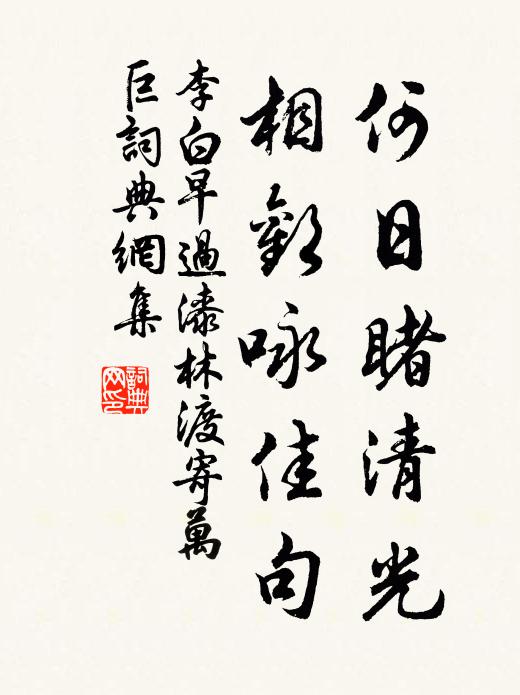 何日睹清光
相歡咏佳句
李白早過漆林渡寄萬
巨詞典網集
詞典
网印